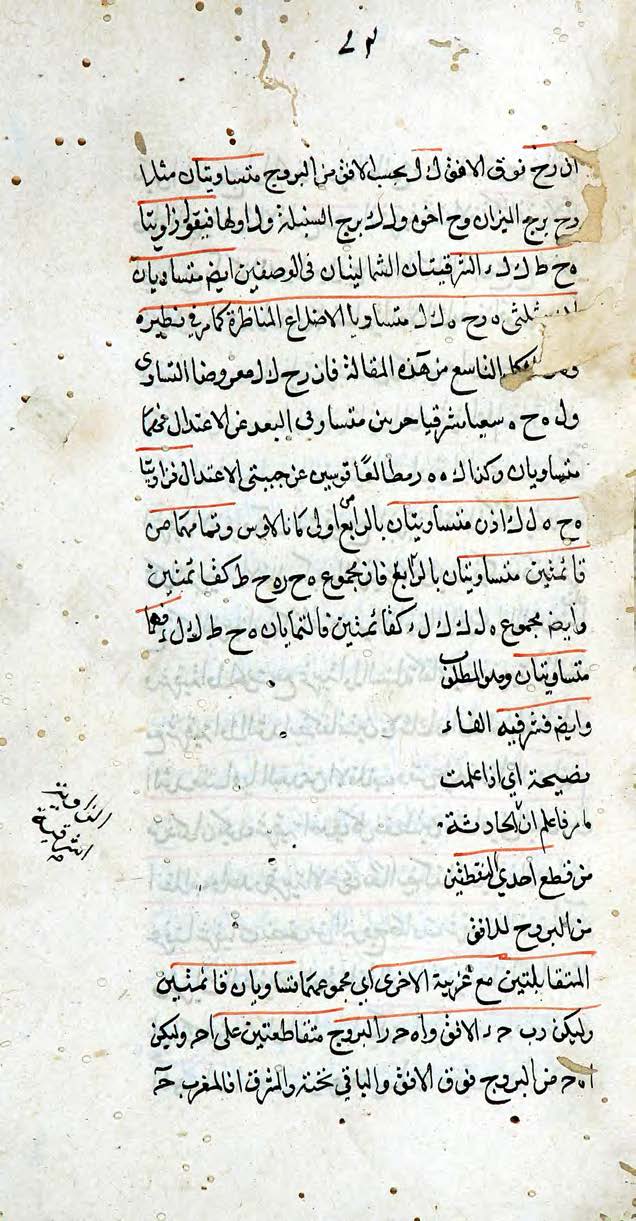 ان رح فوق الافق ك ل بحسب الافق من البروج متساويتان مثلا
رح برج الميزان وح اخره ول ك برج السنبلة ول اولها فيقول زاويتا
ه ح ط ك ل ء الشرقيتان الشماليتان فى الوصفين ايض متساويان
ه رح ه ل ك متساويا الاضلاع المناظرة كما مر في نظيره
التاسع من هذه المقالة فان رح ل ك معروضا التساوى
ول ه ح ه متساوى البعد عن الاعتدال
متساويان وكذا ك ه ه ر مطالعا قوسين عن جنبتى الاعتدال فزاويتا
ه ح ه ل ك اذن متساويتان بالرابع اولى كا نالاوس وتمامهما من
قائمتين متساويتان بالرابع فان مجموع ه ح ر ه ح ط كقائمتين
وايض مجموع ه ل ك ك ل ء كقائمتين فالتمامان ه ح ط ك ل ء فهما
متساويتان وهو المطلوب
وايض فشرقيه الفاء
نصيحة اي اذا علمت
ما مر فاعلم ان الحادثة
من قطع احدي النقطتين
من البروج للافق
المتقابلتين مع غربية الاخرى اي مجموعهما تساويان قائمتين
وليكن د ب ح ء الافق واه ح ر البروج متقاطعتين على ا ح وليكن
ا ه ح من البروج فوق الافق والباقي تحته والمشرق ا فالمغرب ح
الزاوية
الشرقية